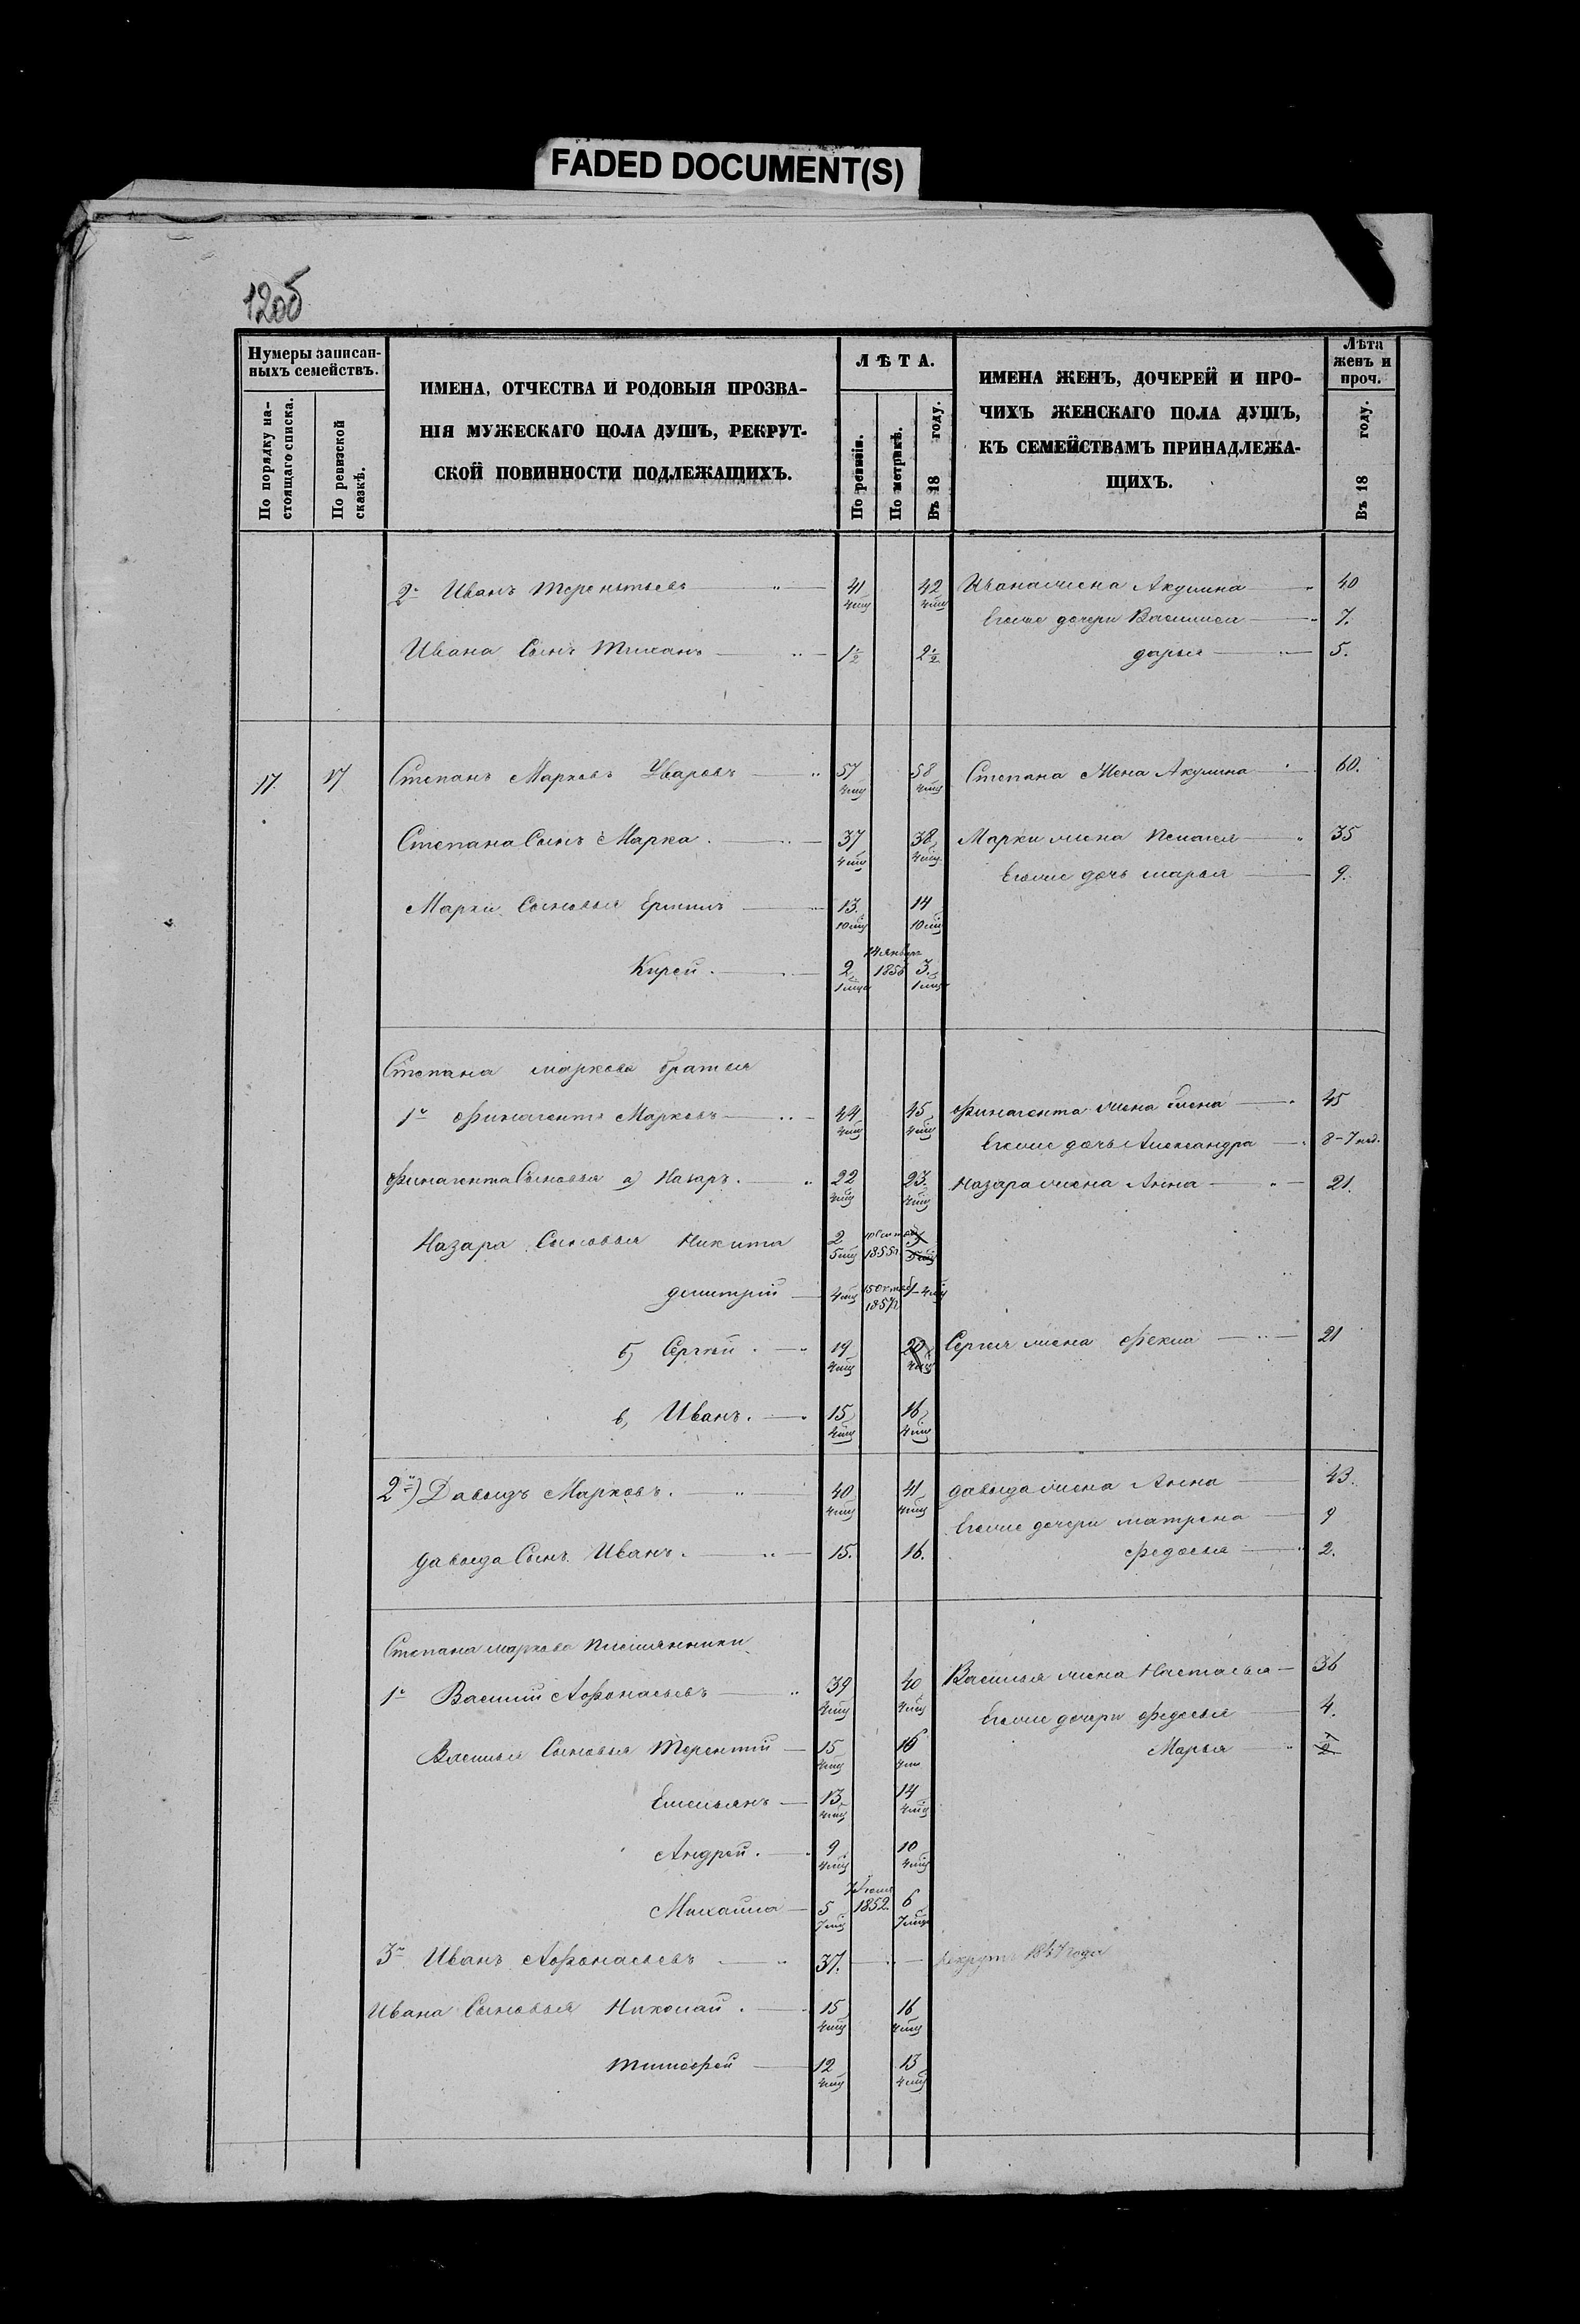 FADED DOCUMENT(S)
120об
Нумеры записан-
ныхъ семействъ.
По порядку на-
стоящаго списка.
По ревизской
сказкѣ.
ИМЕНА, ОТЧЕСТВА И РОДОВЫЯ ПРОЗВА-
НІЯ МУЖЕСКАГО ПОЛА ДУШЪ, РЕКРУТ-
СКОЙ ПОВИННОСТИ ПОДЛЕЖАЩИХЪ.
ЛѢТА.
По ревизіи.
По метрикѣ.
Въ 18 году.
ИМЕНА ЖЕНЪ, ДОЧЕРЕЙ И ПРО-
ЧИХЪ ЖЕНСКАГО ПОЛА ДУШЪ,
КЪ СЕМЕЙСТВАМЪ ПРИНАДЛЕЖА-
ЩИХЪ.
Лѣта
женъ и
проч.
Въ 18 году.
2й Иванъ Терентьевъ 41 4мц 42 4мц Ивана жена Акулина 40
Егоже дочери Василиса 7.
Ивана Сынъ Тиханъ 1½ 2½ дарья 5.
17. 17 Степанъ Марковъ Уваровъ 57 4мц 58 4мц Степана Жена Акулина 60.
Степана Сынъ Марка. 37 4мц 38 4мц Марки жена Пелагея 35
Егоже дочь марья 9.
Марки Сыновья Ермилъ 13. 10мц 14 10мц
Кирей. 2 1мца 14 января 1856 3. 1мца
Степана маркова братья
1й Финагентъ Марковъ 44 4мц 45 4мц Финагента жена Елена 45
Егоже дочь Александра 8-7 нед.
Финагента Сыновья а) Назаръ. 22 4мц 23. 4мц Назара жена Анна 21.
Назара Сыновья Никита 2 5мц 1855г
дмитрій 4мц 15 октяб 1857г 1-4мц
б) Сергей. 19 4мц 20 4мц Сергея жена Фекла 21
в, Иванъ. 15 4мц 16 4мц
2й) Давыдъ Марковъ. 40 4мц 41 4мц давыда жена Анна 43.
Егоже дочери матрена 9
давыда Сынъ Иванъ. 15. 16. Федосья 2.
Степана маркова племянники
1й Василій Афонасьевъ 39 4мц 40 4мц Василья жена Настасья 36
Егоже дочери Федосья 4.
Василья Сыновья Терентій 15 4мц 16 4мц Марья 2
Емельянъ 13. 4мц 14 4мц
Андрей. 9 4мц 10 4мц
Михаила 5 7мц 1852. 6 7мца
3й Иванъ Афонасьевъ 37. рекрутъ 1847 года
Ивана Сыновья Николай. 15 4мц 16 4мц
тимофей 12 4мц 13 4мц